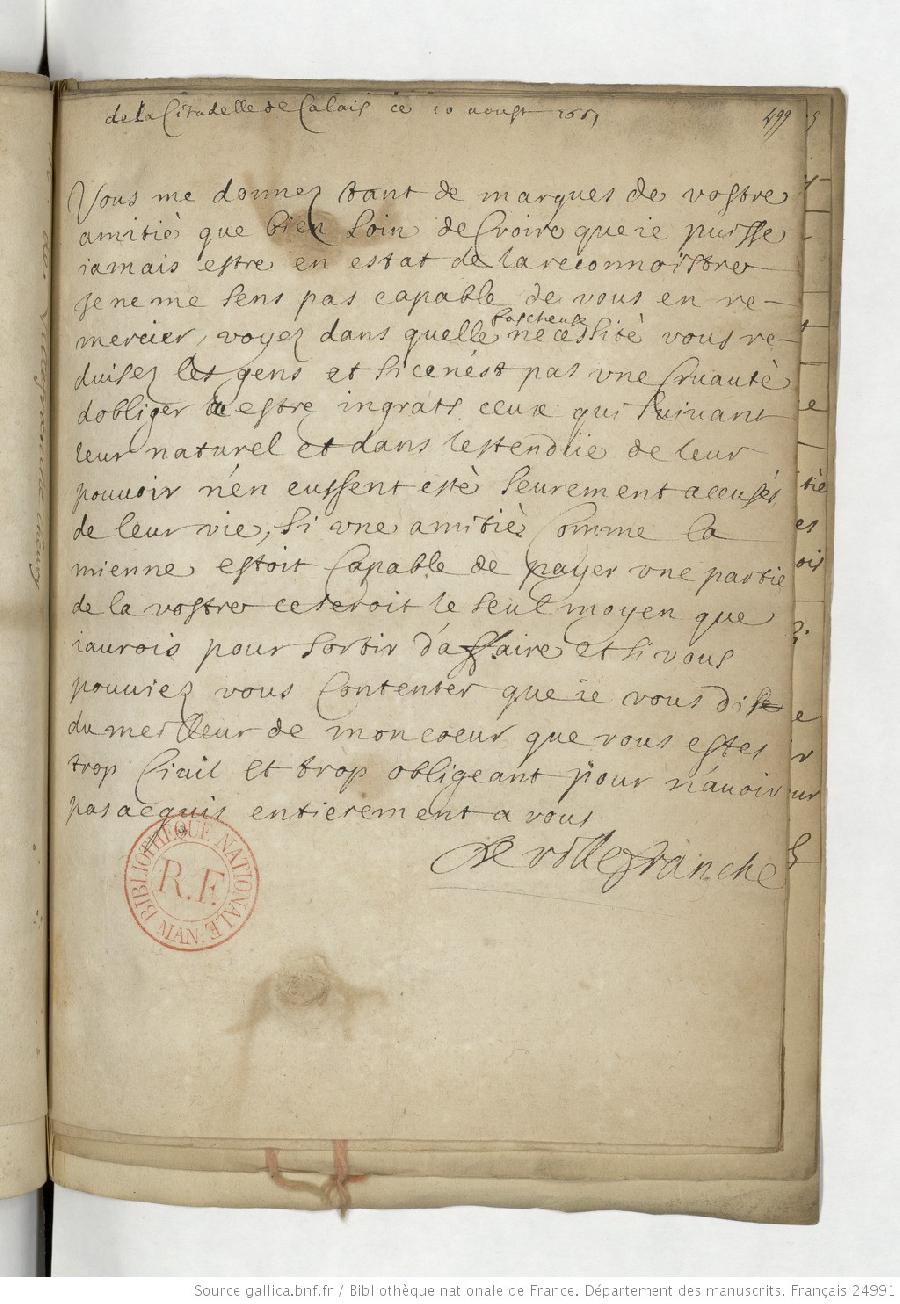 de la Citadelle de Calais ce 10 aoust 1661
499
Vous me donnez tant de marques de vostre
amitié que bien loin de Croire que ie puisse
iamais estre en estat de la reconnoistre
Je ne me sens pas capable de vous en re-
mercier, voyez dans quelle fascheuse necessité vous re-
duisez les gens et si ce n'est pas vne Cruauté
dobliger a estre ingrats ceux qui suiuant
leur naturel et dans lestendüe de leur
pouuoir n'en eussent esté seurement accusés
de leur vie, si vne amitié Comme la
mienne estoit Capable de payer vne partie
de la vostre ce seroit le seul moyen que
iaurois pour sortir d'affaire et si vous
pouuiez vous Contenter que ie vous dise
du meilleur de mon coeur que vous estes
trop Ciuil et trop obligeant pour n'auoir
pas acquis entierement a vous
De villefranche
BIBLIOTHÈQUE NATIONALE
R.F.
MAN
Source gallica.bnf.fr / Bibliothèque nationale de France. Département des manuscrits. Français 24991